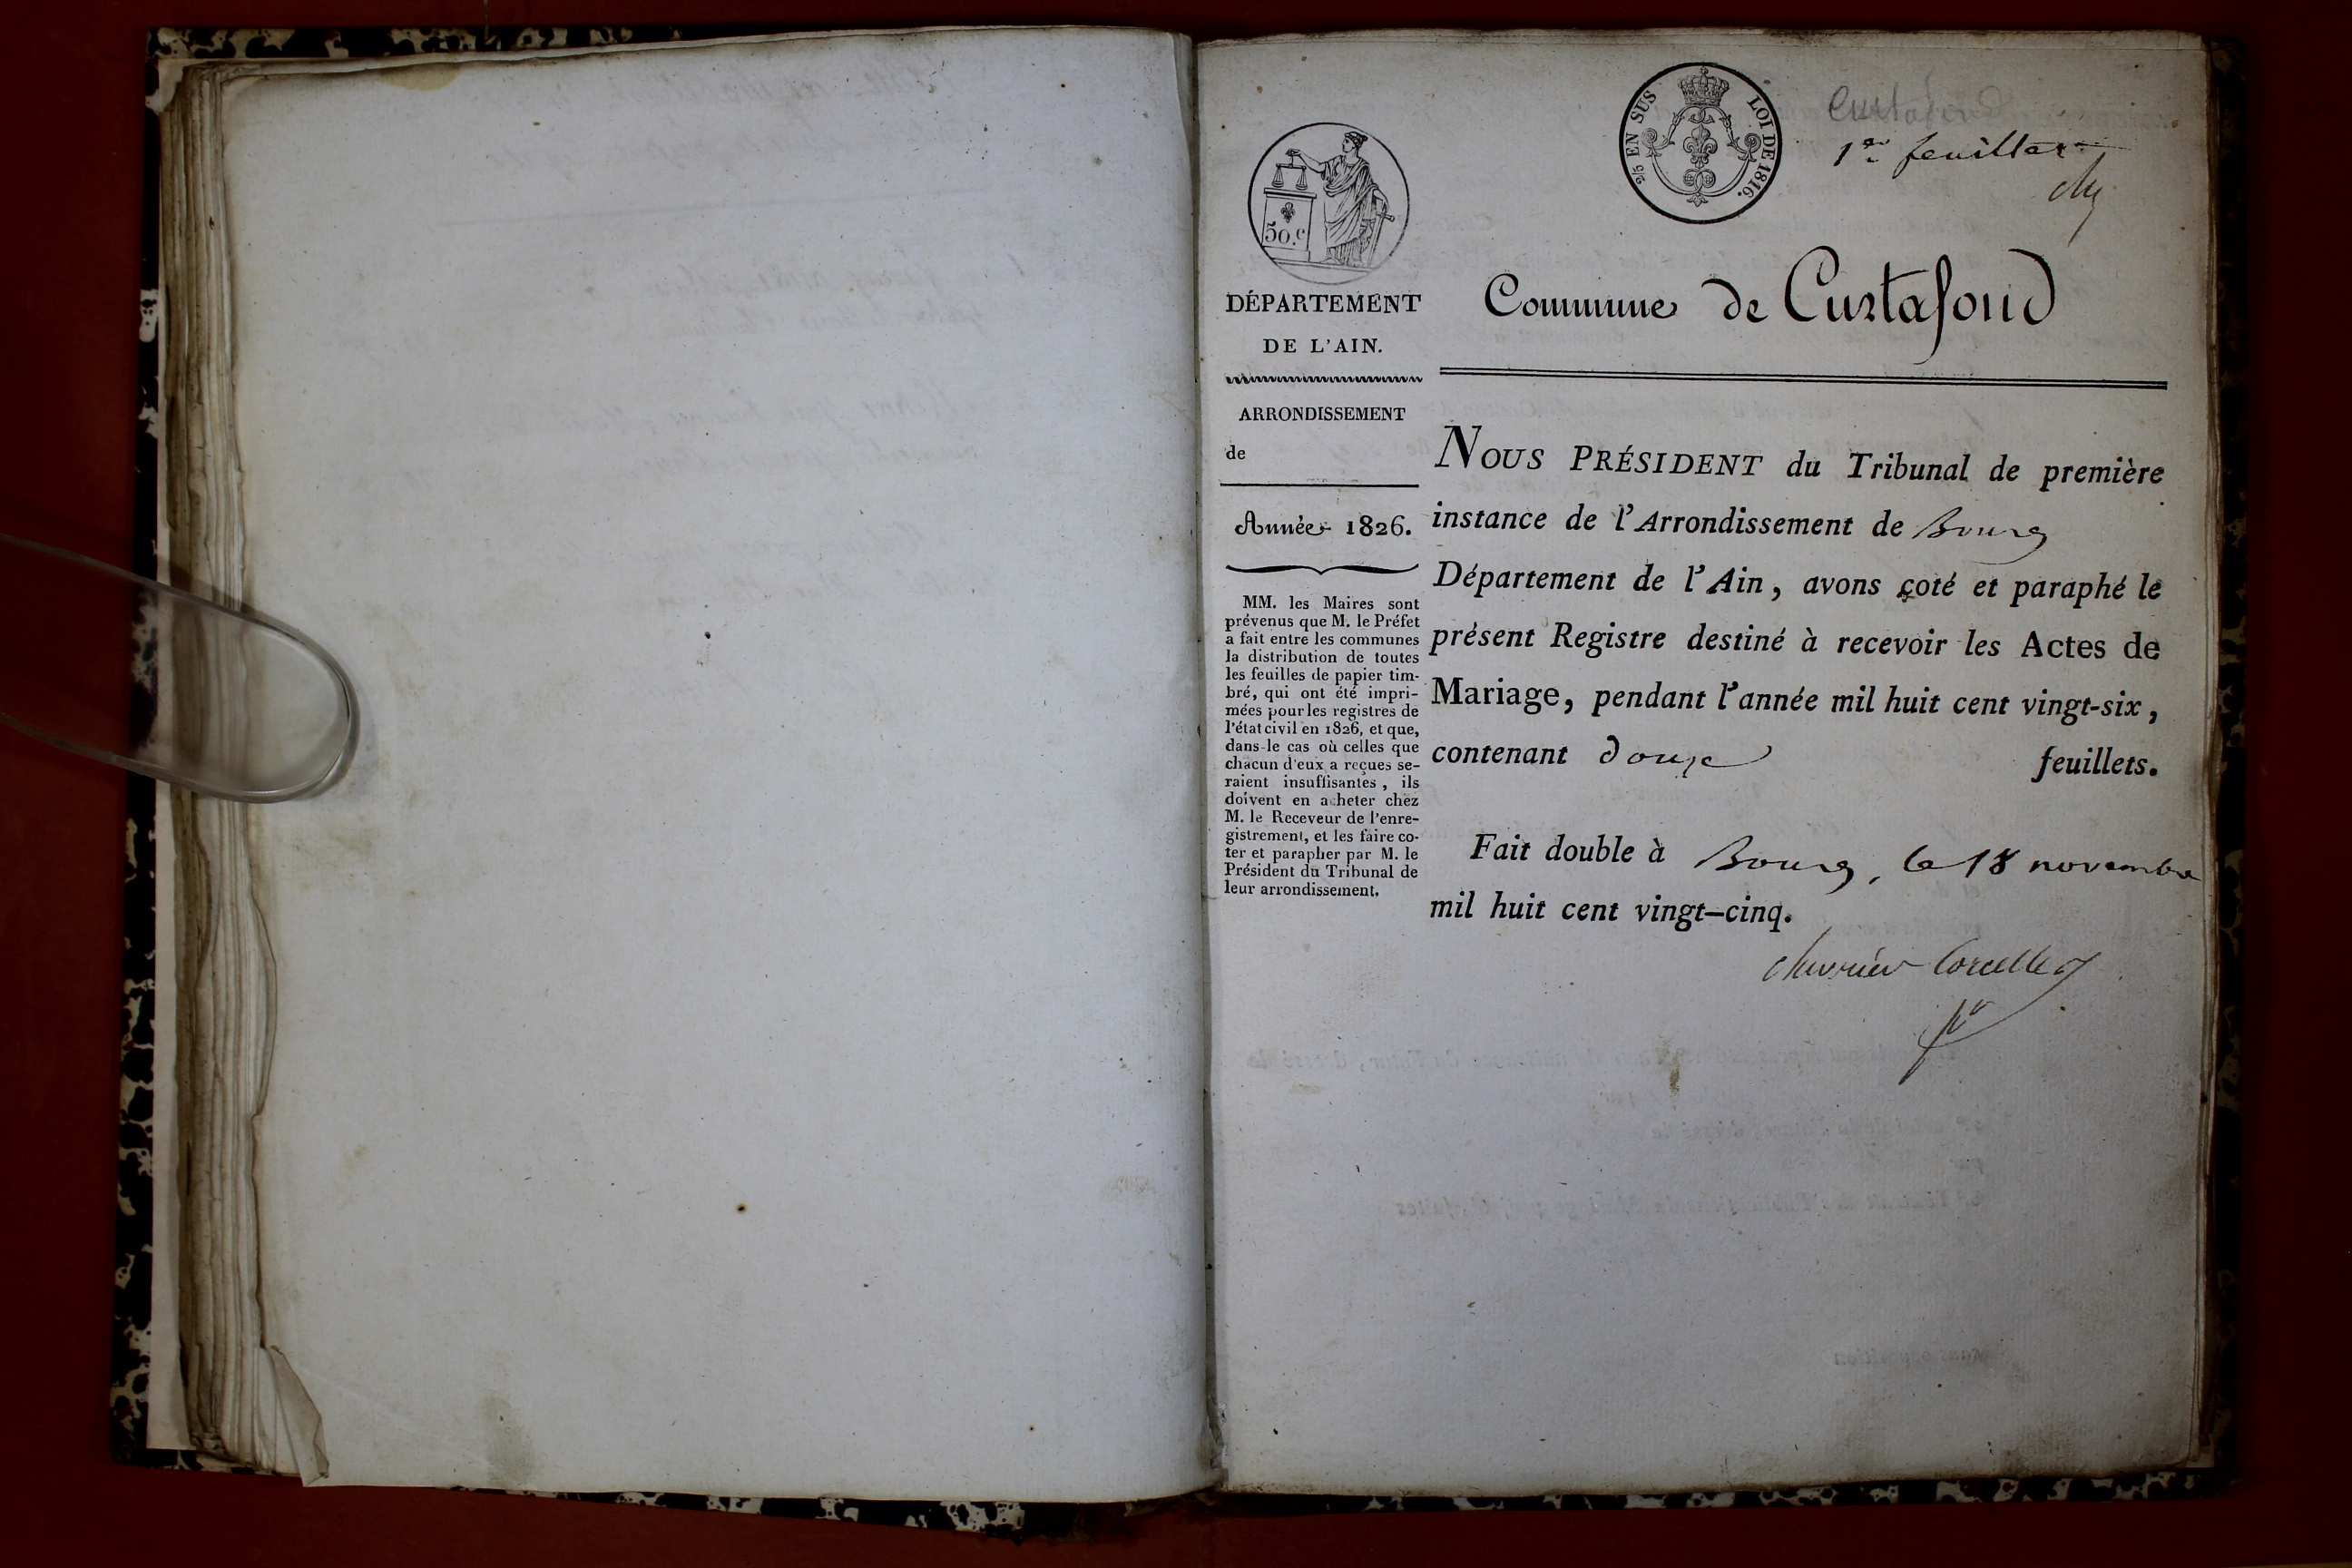 2/5 EN SUS LOI DE 1816.
Curtafond
1er feuillet
50.c
DÉPARTEMENT
DE L'AIN.
ARRONDISSEMENT
de
Année 1826.
MM. les Maires sont
prévenus que M. le Préfet
a fait entre les communes
la distribution de toutes
les feuilles de papier tim-
bré, qui ont été impri-
mées pour les registres de
l'état civil en 1826, et que,
dans le cas où celles que
chacun d'eux a reçues se-
raient insuffisantes, ils
doivent en acheter chez
M. le Receveur de l'enre-
gistrement, et les faire co-
ter et parapher par M. le
Président du Tribunal de
leur arrondissement.
Commune de Curtafond
NOUS PRÉSIDENT du Tribunal de première
instance de l'Arrondissement de Bourg
Département de l'Ain, avons coté et paraphé le
présent Registre destiné à recevoir les Actes de
Mariage, pendant l'année mil huit cent vingt-six,
contenant douze feuillets.
Fait double à Bourg, le 18 novembre
mil huit cent vingt-cinq.
Chevrier Corcelles